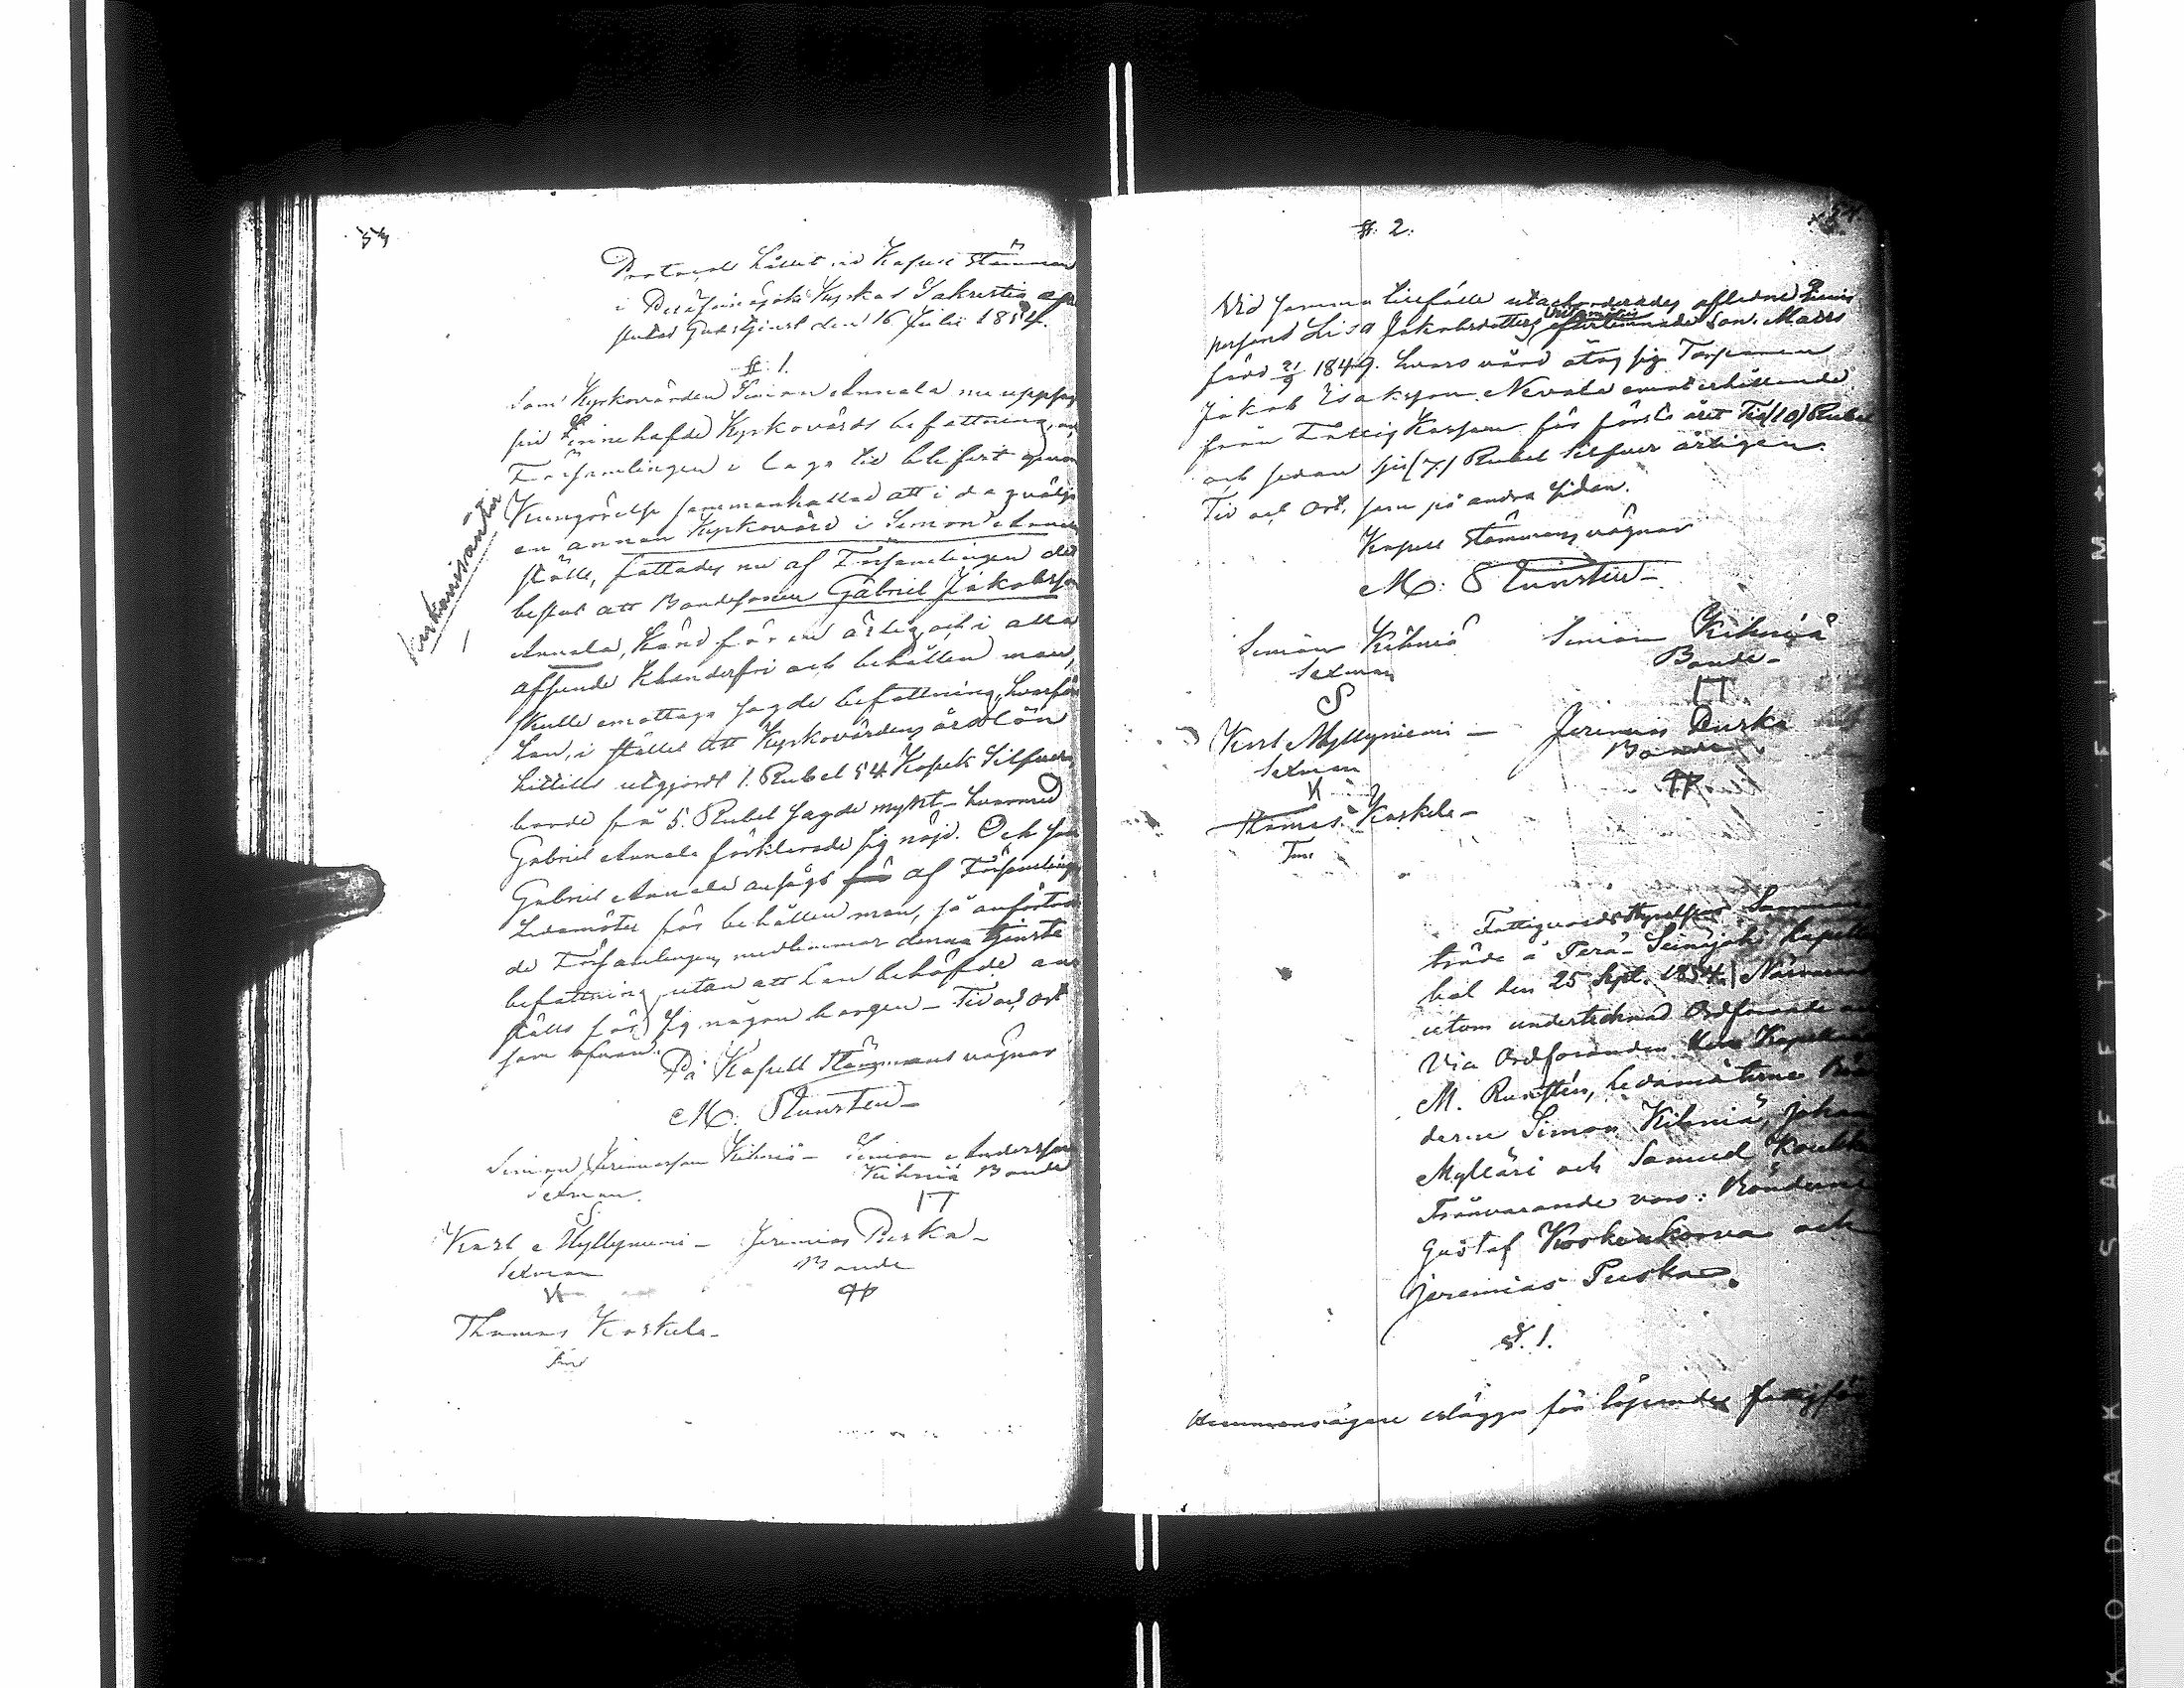 Protocoll hållet vid Kapell Stämman
i Peräseinäjoki Kyrkas Sakristia
Gudstjenst den 16 Julii 1854.
§. 1.
Som Kyrkovärden Simon Annala nu
sin innehafde Kyrkovärds befattning,
Församlingen i laga tid blifvit
Kungörelse sammankallad att i dag välja
en annan Kyrkovärd i Simon Annala
ställe, fattades nu af Församlingen det
beslut att Bondesonen Gabriel Jakobsson
Annala, känd för en ärlig och i alla
afseende klanderfri och behållen man,
skulle emottaga sagde befattning, hvarför
han, i stället att Kyrkovärdens årslön
hittills utgjordt 1. Rubel 54 Kopek Silfver,
borde få 5. Rubel sagde mynt – hvarmed
Gabriel Annala förklarade sig nöjd. Och som
Gabriel Annala ansågs af Församlings
Ledamöter för behållen man, så anförtrod
de Församlingens medlemmar denna tjenste
befattning utan att han behöfde
ställa för sig någon borgen – Tid och Ort
som ofvan.
På Kapell Stämmans vägnar
M. Runsten –
Simon Jeremiasson Kihniä – Simon Andersson
Sexman. Kihniä Bonde
S
Karl Myllyniemi – Jeremias Puska –
Sexman Bonde
K
Thomas Koskela –
§. 2.
Vid samma tillfälle utackorderades aflidne Inhis
person Lisa Jakobsdotters efterlemnade Son. Matts
född 21/9 1849. hvars vård åtog sig Torparen
Jakob Isaksson Nevala emot erhållande
från Fattig Kassan för första året Tio (10) Rubel
och sedan sju (7) Rubel Silfver årligen.
Tid och Ort, som på andra sidan.
Kapell Stämmans vägnar
M. Runsten –
Simon Kihniä Simon Kihniä
Sexman Bonde –
S
Karl Myllyniemi – Jeremias Puska
Sexman Bonde
K
Thomas Koskela –
Fattigvårdsstyrelsens
träde å Perä-Seinäjoki Kapell
den 25 Sept. 1854. Närvarande
utom undertecknad Ordförande
Vice Ordföranden
M. Runstén, Ledamöterne Bön
derne Simon Kihniä, Johan
Mylläri och Samuel
Frånvarande voro: Bönderne
Gustaf Koskenkorva och
Jeremias Puska.
§. 1.
Hemmansägare erlägga för löpande